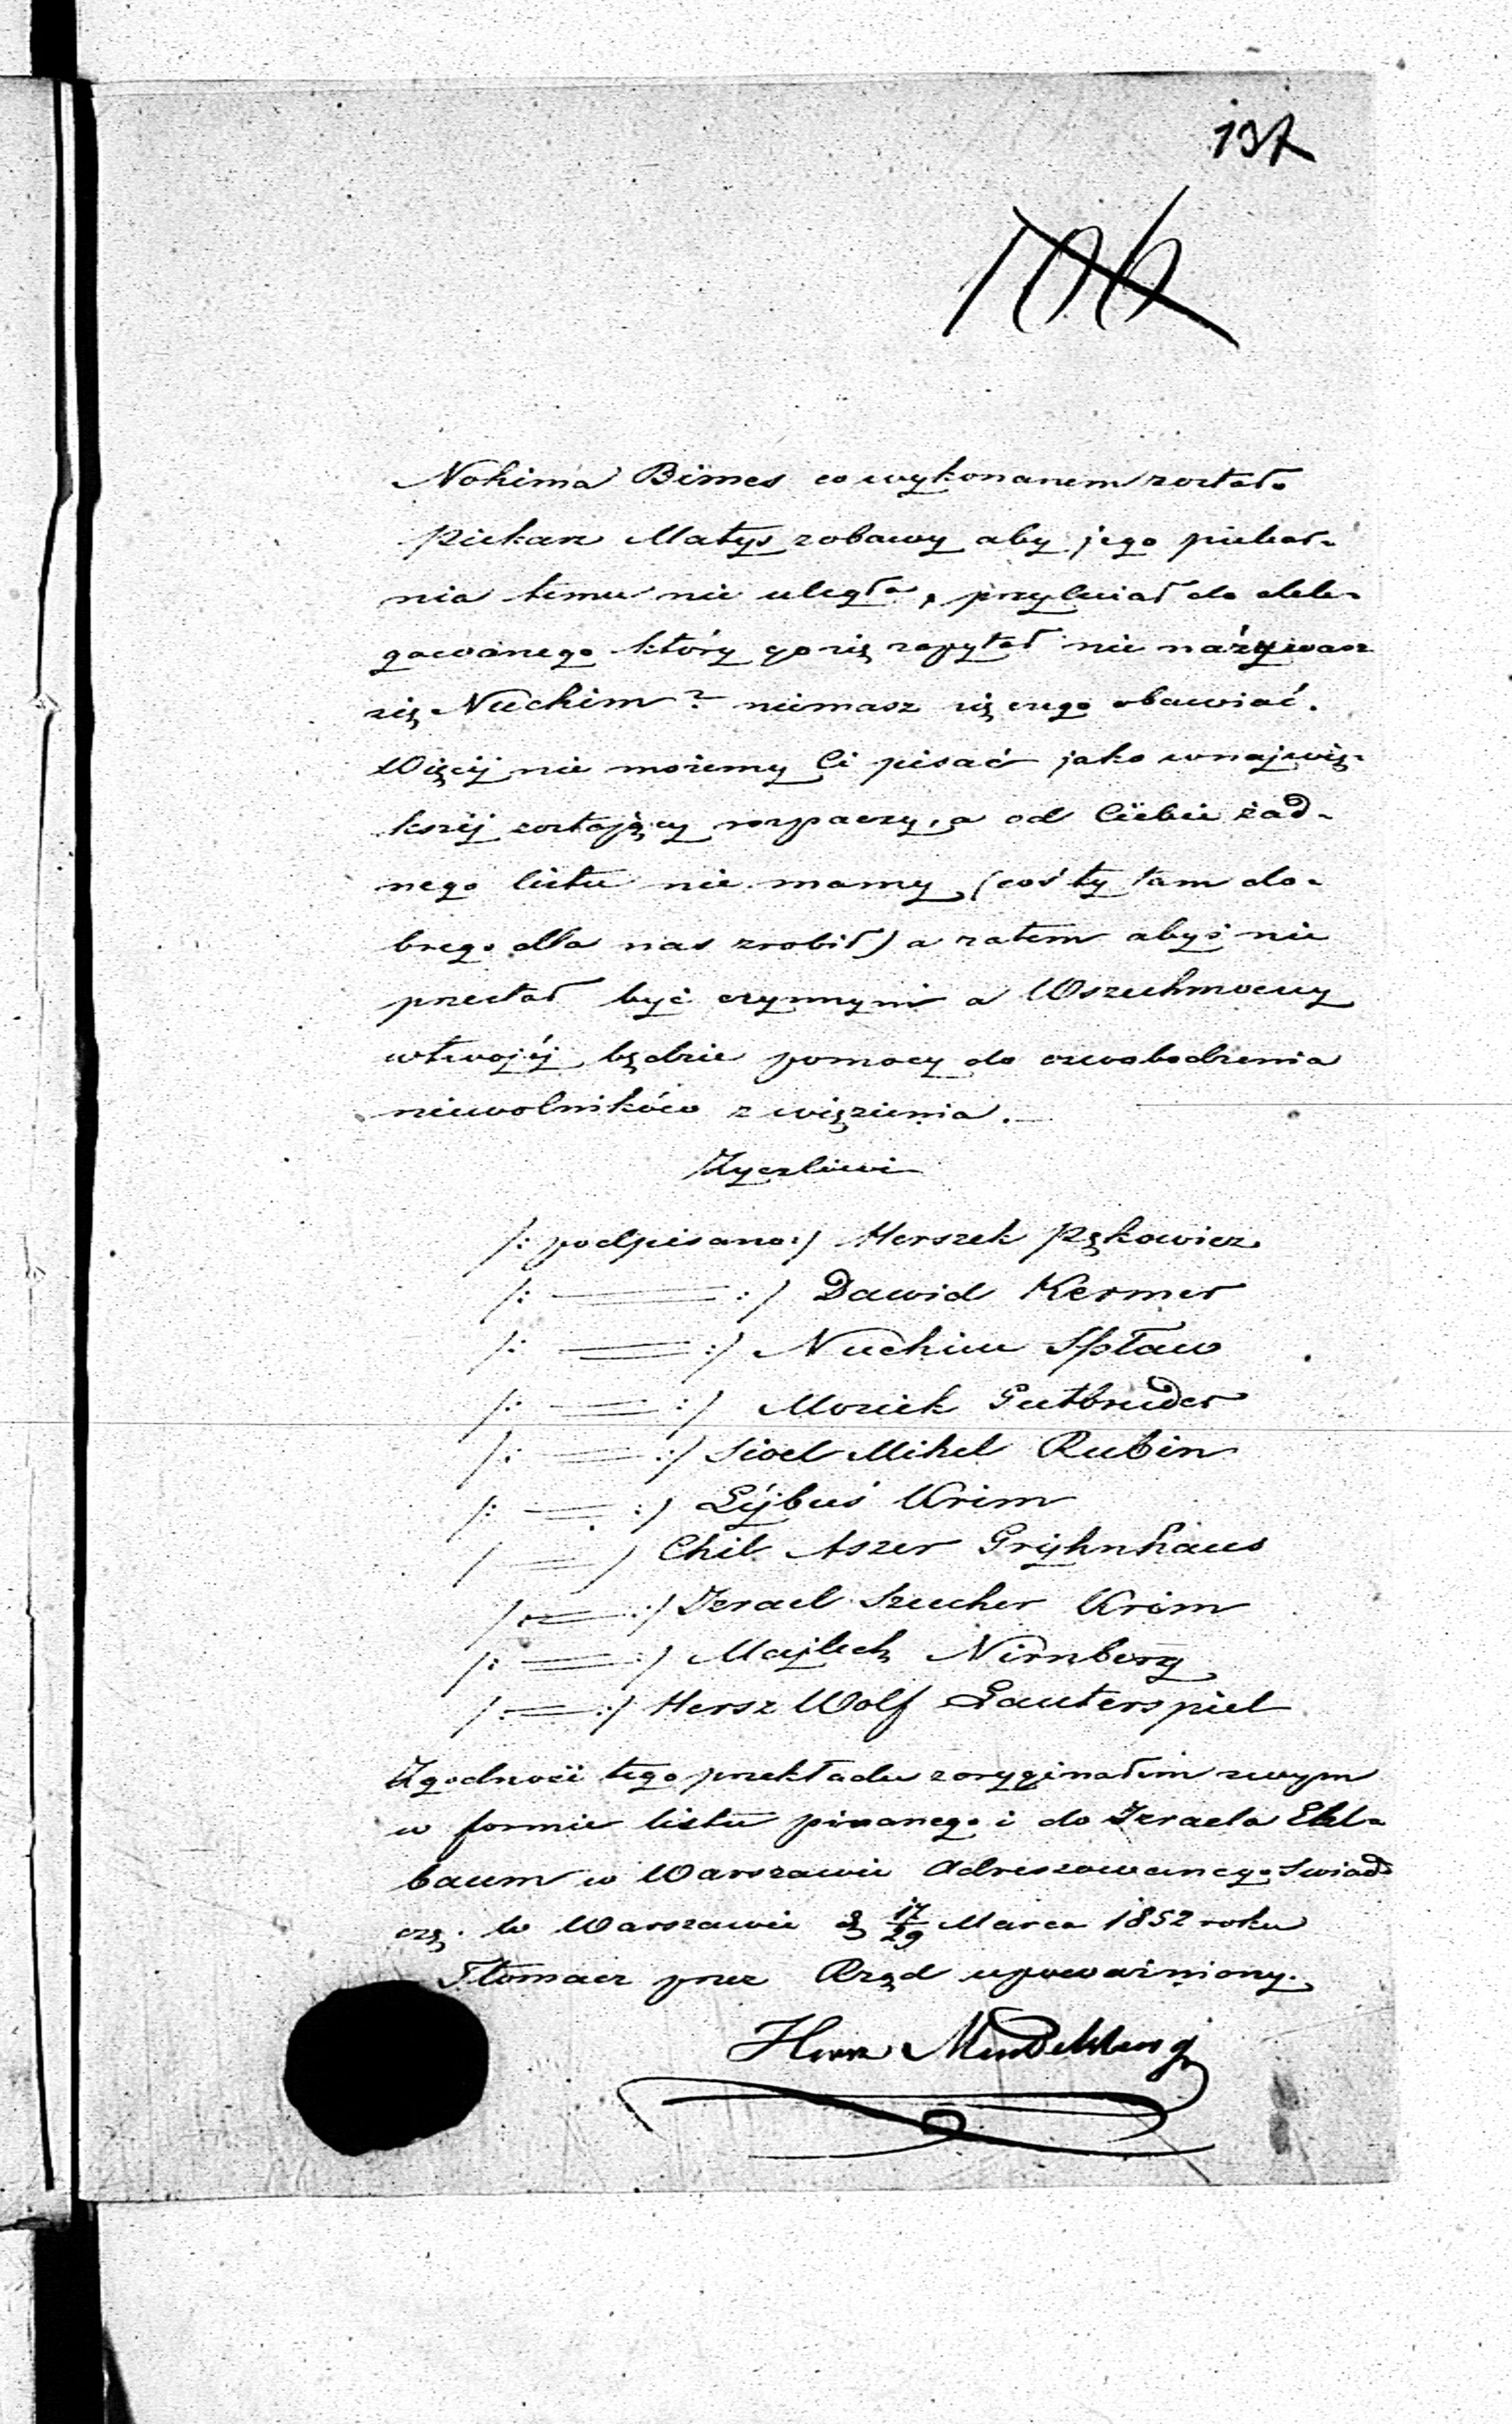 137
106
Nohima Bimes co wykonanem zostało
Piekarz Matys zobawy aby jego piekar-
nia temu nie uległa, przyleciał do dele-
gowanego który go się zapytał nie nazywasz
się Nuchim? niemasz się czego obawiać.
Więcéj nie możemy Ci pisać jako wnajwię-
kszéj zostający rozpaczy, a od Ciebie żad-
nego listu nie mamy (coś ty tam do-
brego dla nas zrobił) a zatem abyś nie
przestał być czynnym a Wszechmocny
wtwojéj będzie pomocy do oswobodzenia
niewolników z więzienia.
Zyczliwi
/: podpisano :/ Herszek Pękowicz
/: = :/ Dawid Kermer
/: = :/ Nuchim Szpław
/: = :/ Moziek Gutbruder
/: = :/ Sioel Mihel Rubin
/: = :/ Lijbuś Krim
/ = / Chil Aszer Grijhnhaus
/: = :/ Izrael Szucher Krim
/: = :/ Majlech Nirnberg
/: = :/ Hersz Wolf Lauterspiel
Zgodność tego przekładu zoryginałem swym
w formie listu pisanego i do Izraela Ekel-
baum w Warszawie Adreszowanego Swiad
czę. w Warszawie d 17/29 Marca 1852 roku
Tłomacz prze Rząd upoważniony.